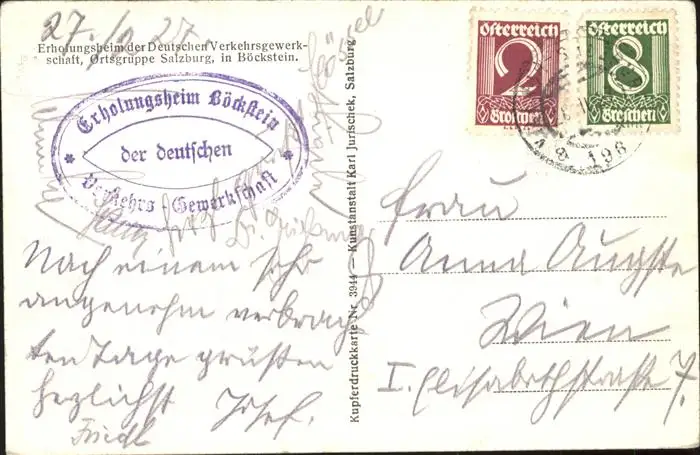 27./2 27
Erholungsheim der Deutschen Verkehrsgewerk-
schaft, Ortsgruppe Salzburg, in Böckstein.
Erholungsheim Böckstein
der deutschen
Verkehrs-Gewerkschaft
Nach einem sehr
angenehm verbrach
ten Tage grüßen
herzlichst Josef.
Friedl
Kupferdruckkarte Nr. 3944 — Kunstanstalt Karl Jurischek, Salzburg
Österreich
2
Groschen
Österreich
8
Groschen
Frau
Anna Augste
Wien
I. Elisabethstraße 7.